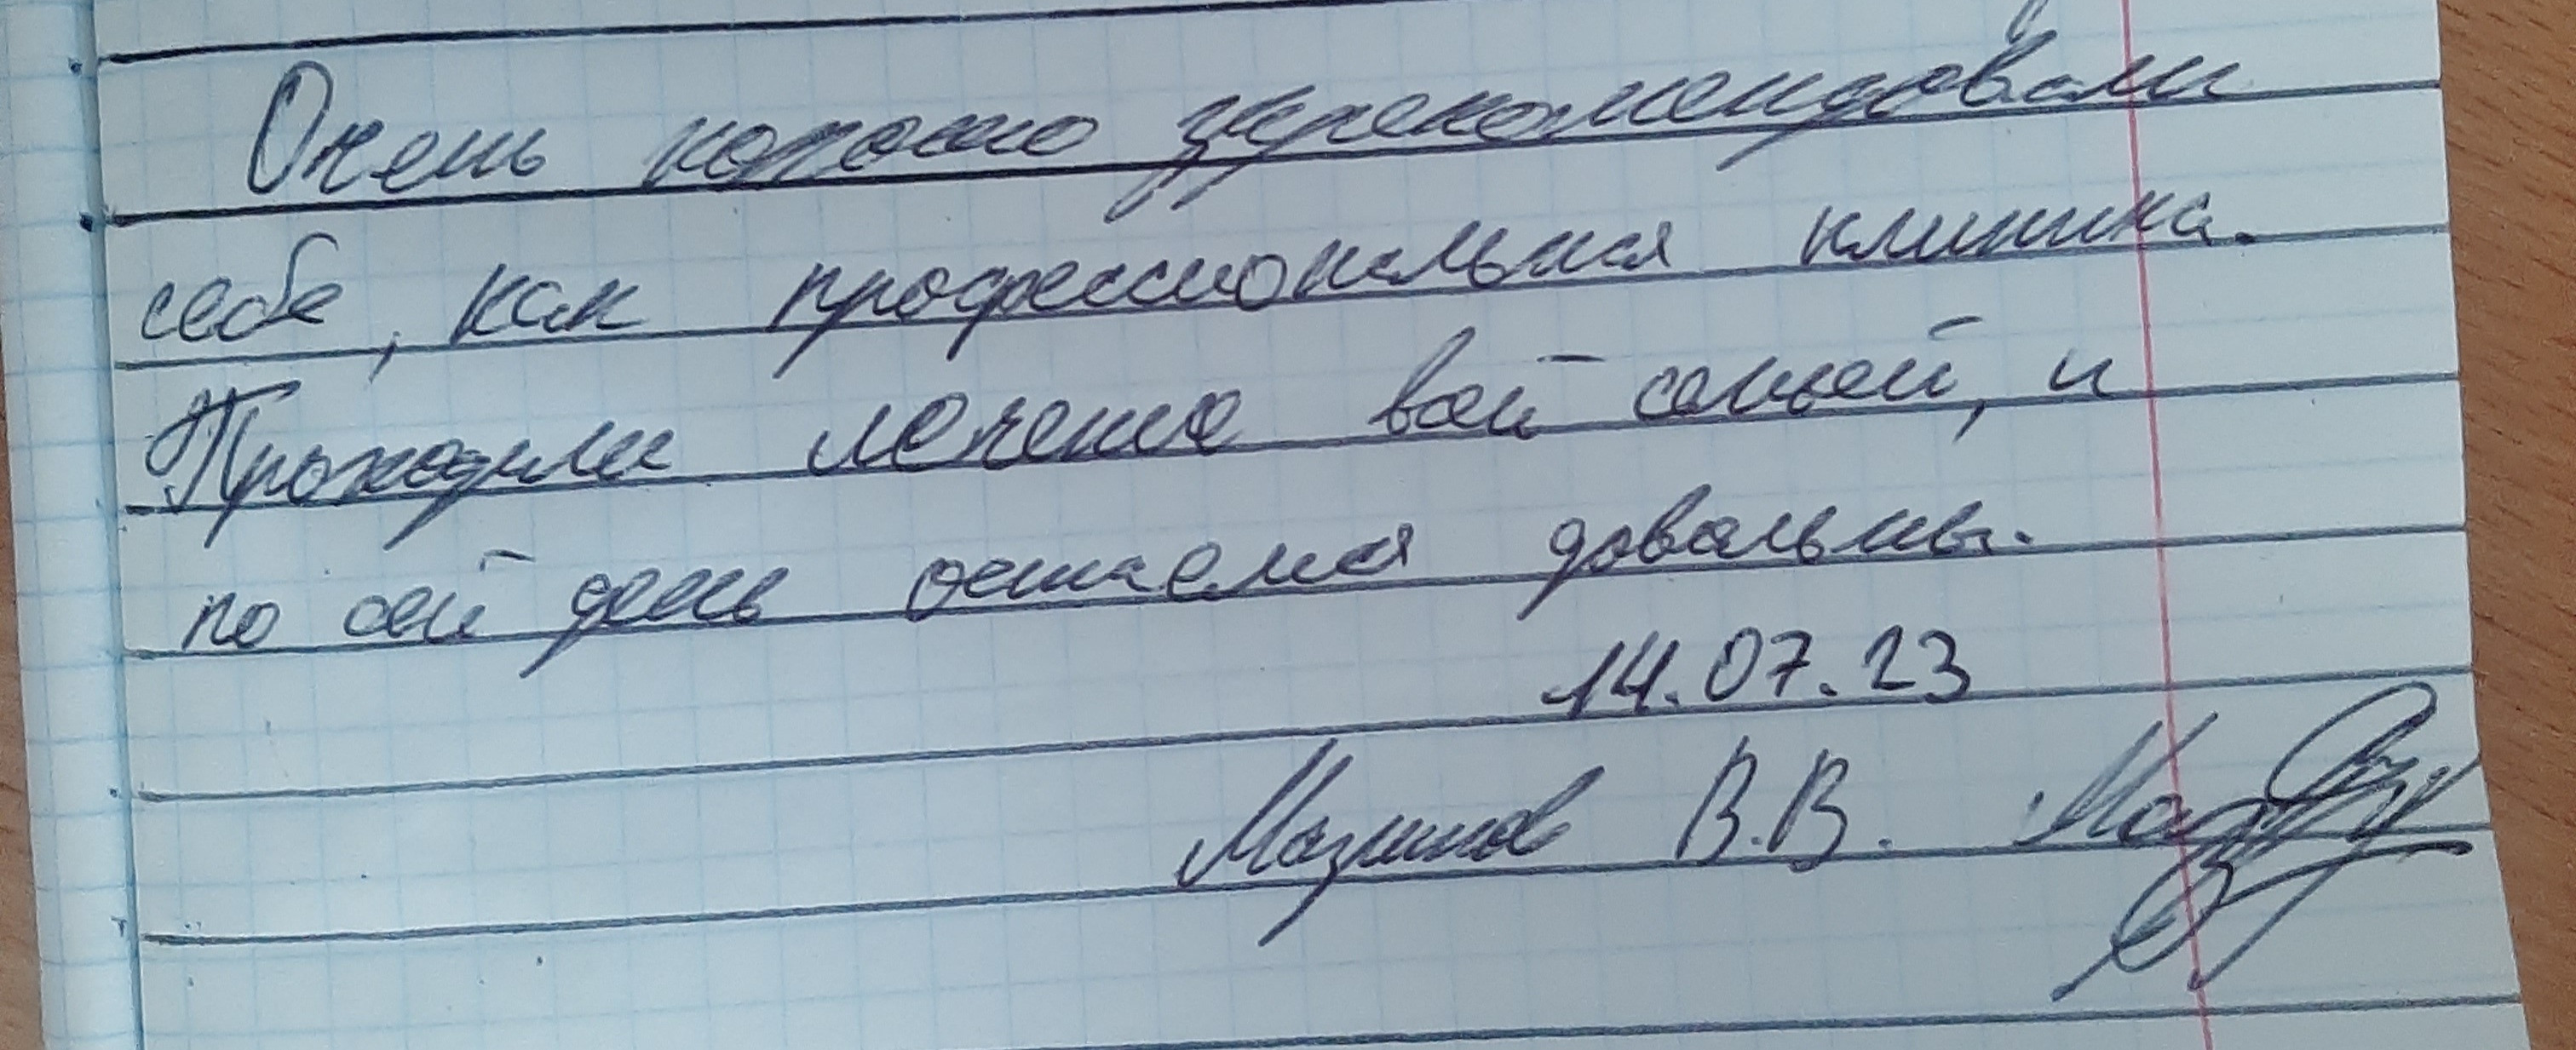 Очень хорошо зарекомендовали
себе, как профессиональная клиника.
Проходили лечение всей семьей, и
по сей день остаемся довольны.
14.07.23
В.В.